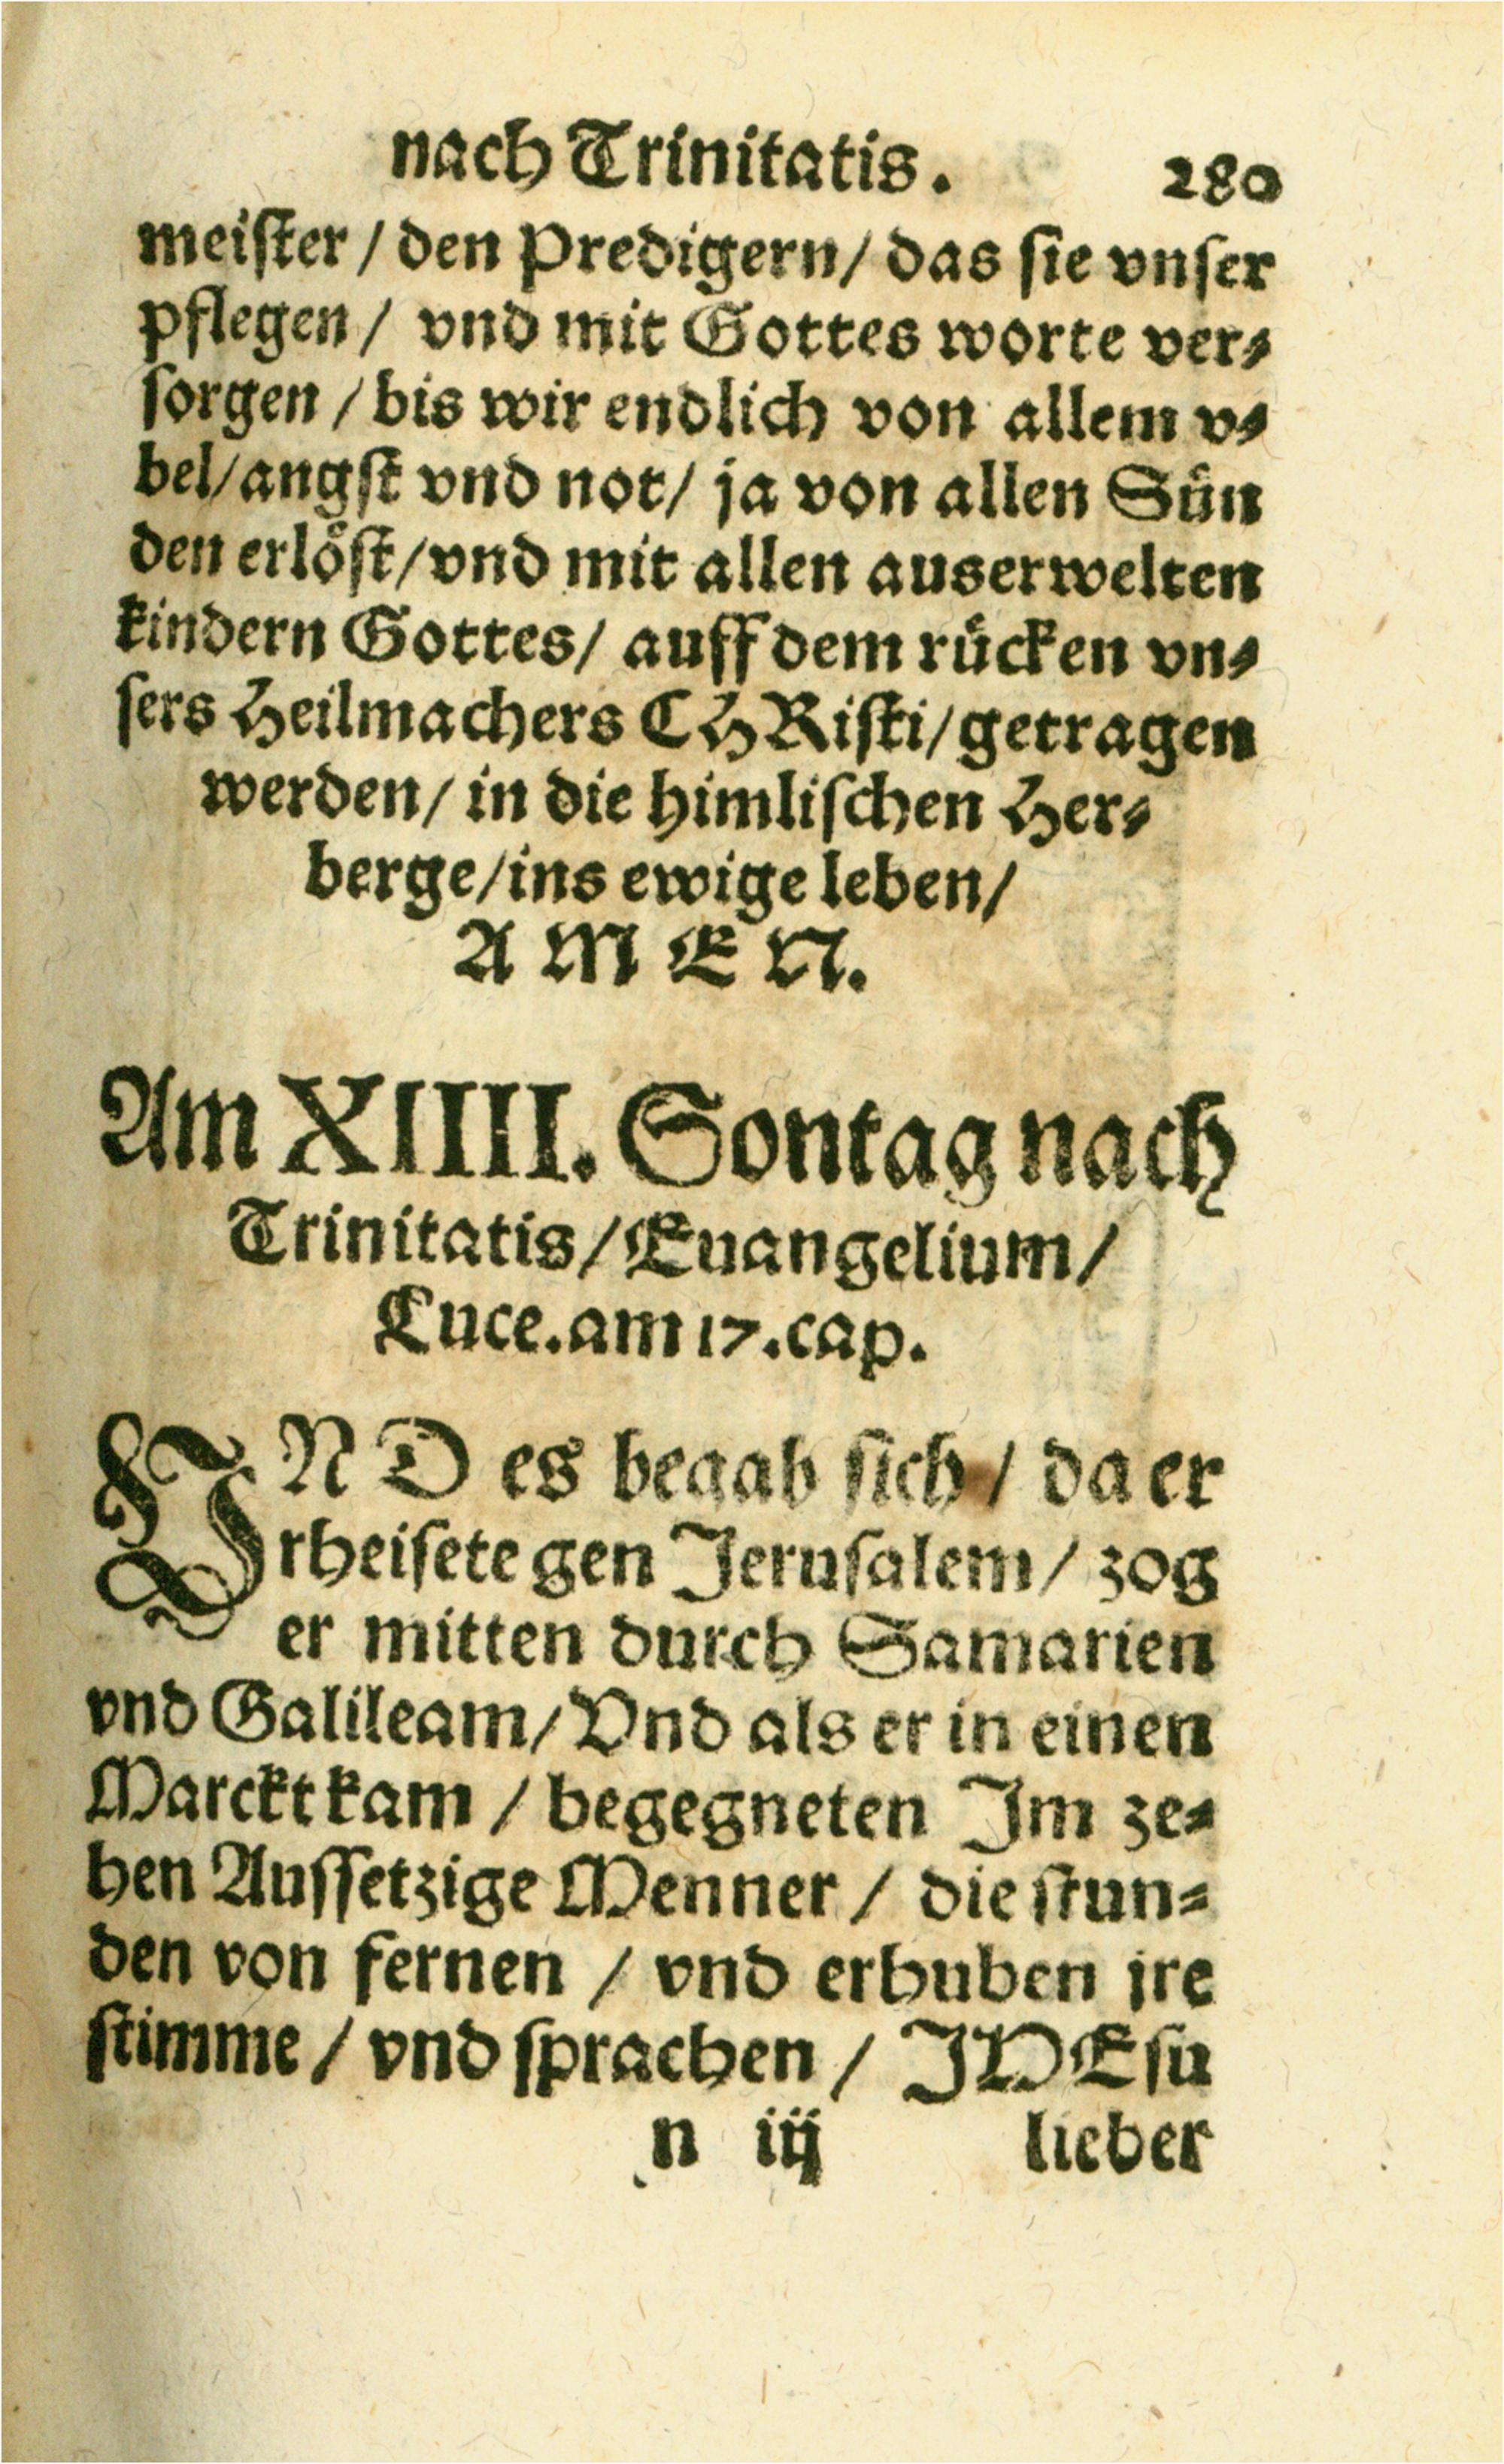 nach Trinitatis. 280
meiſter / den Predigern / das ſie vnſer
pflegen / vnd mit Gottes worte ver⸗
ſorgen / bis wir endlich von allem v⸗
bel / angſt vnd not / ja von allen Suͤn
den erloͤſt / vnd mit allen auserwelten
kindern Gottes / auff dem ruͤcken vn⸗
ſers Heilmachers CHRiſti / getragen
werden / in die himliſchen Her⸗
berge / ins ewige leben /
A M E N.
Am XIIII. Sontag nach
Trinitatis / Euangelium /
Luce. am 17. cap.
VND es begab ſich / da er
rheiſete gen Jeruſalem / zog
er mitten durch Samarien
vnd Galileam / Vnd als er in einen
Marckt kam / begegneten Jm ze⸗
hen Auſſetzige Menner / die ſtun⸗
den von fernen / vnd erhuben jre
ſtimme / vnd ſprachen / JHEſu
n iij lieber